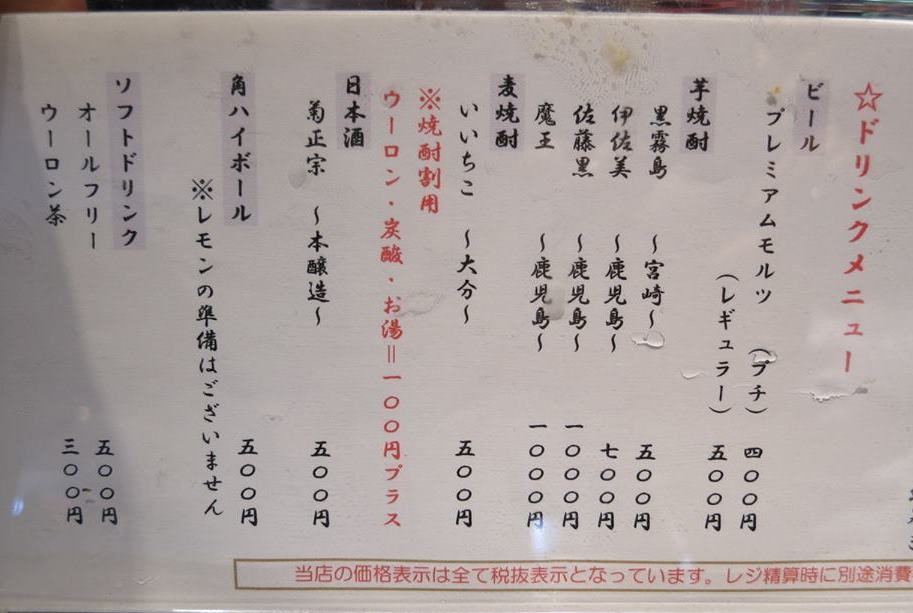 ☆ドリンクメニュー
ビール
プレミアムモルツ （プチ） 四〇〇円
（レギュラー） 五〇〇円
芋焼酎
黒霧島 ～宮崎～ 五〇〇円
伊佐美 ～鹿児島～ 七〇〇円
佐藤黒 ～鹿児島～ 一〇〇〇円
魔王 ～鹿児島～ 一〇〇〇円
麦焼酎
いいちこ ～大分～ 五〇〇円
※焼酎割用
ウーロン・炭酸・お湯＝一〇〇円プラス
日本酒
菊正宗 ～本醸造～ 五〇〇円
角ハイボール 五〇〇円
※レモンの準備はございません
ソフトドリンク
オールフリー 五〇〇円
ウーロン茶 三〇〇円
当店の価格表示は全て税抜表示となっています。レジ精算時に別途消費